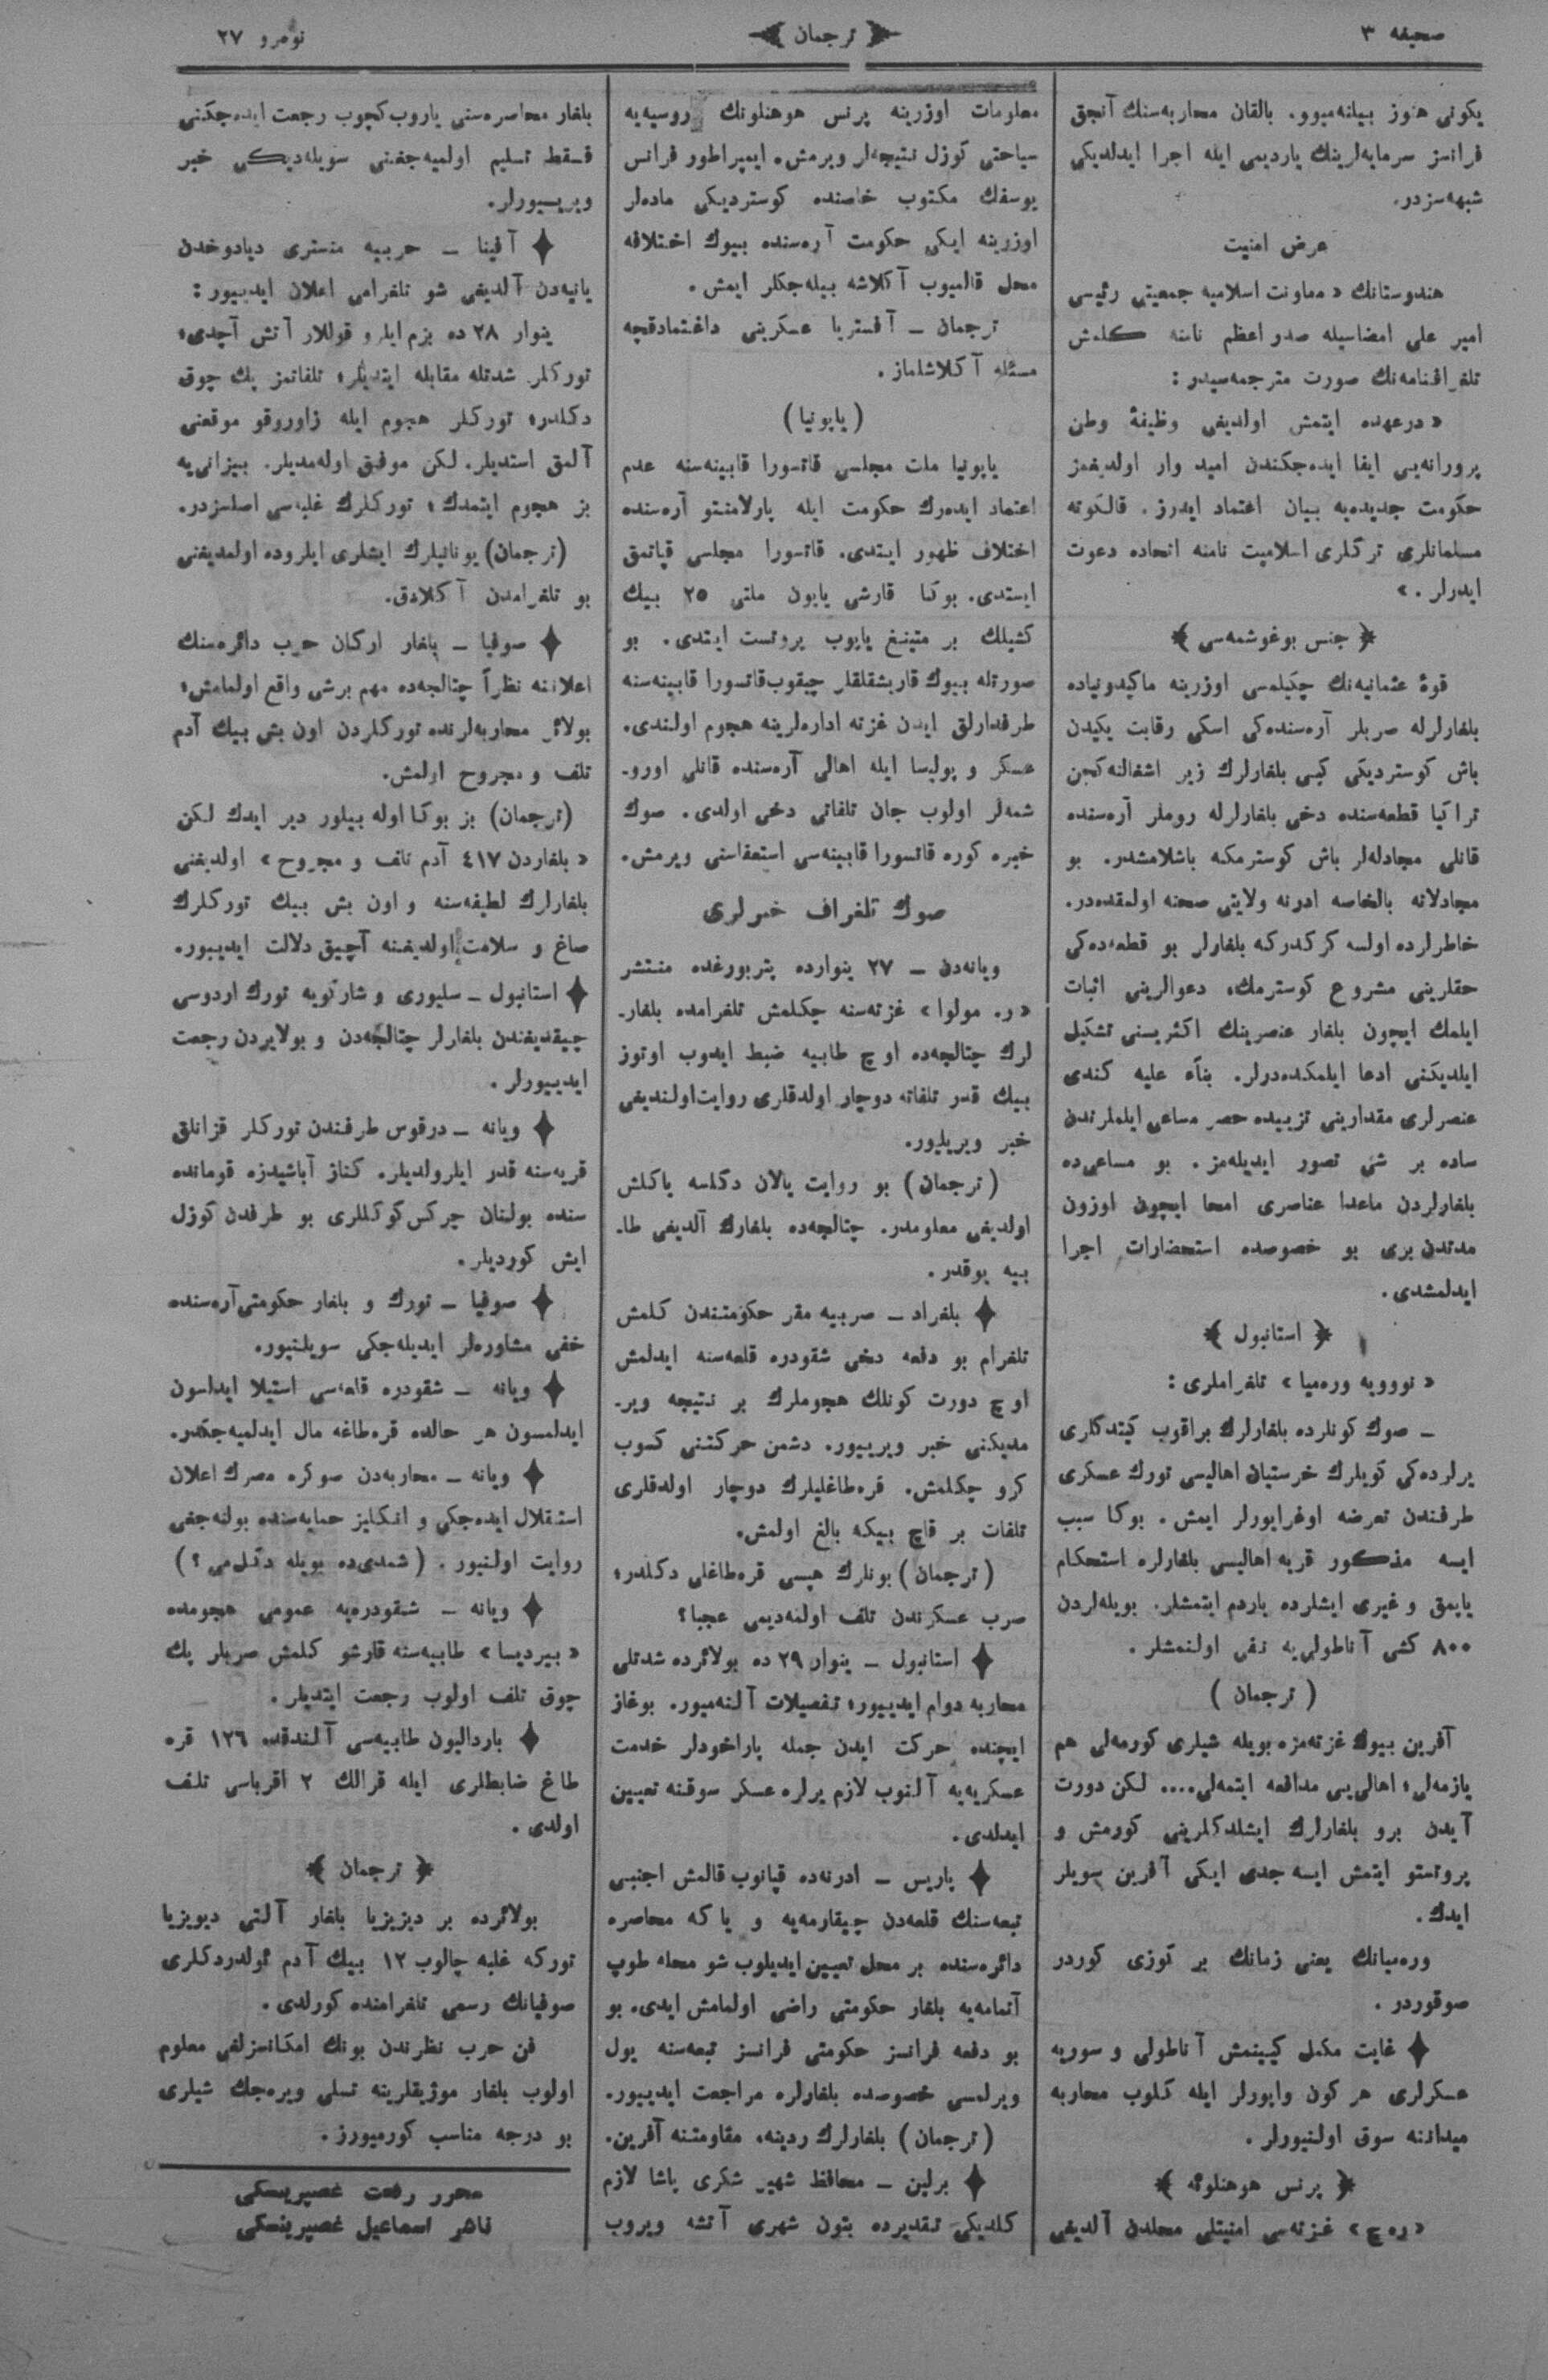 صحیفه ٣
ترجمان
نومرو ٢٧
یكونی هنوز بیلنه‌میوو. بالقان محاربه‌سنك آنجق
فرانسز سرمایه‌لرینك یاردیمی ایله اجرا ایدلدیكی
شبهه‌سزدر.
عرض امنیت
هندوستانك «معاونت اسلامیه جمعیتی رئیسی
امیر علی امضاسیله صدر اعظم نامنه كلمش
تلغرافنامه‌نك صورت مترجمه‌سیدر:
«درعهده ایتمش اولدیغی وظیفهٔ وطن
پرورانه‌یی ایفا ایده‌جكندن امید وار اولدیغمز
حكومت جدیده‌یه بیان اعتماد ایدرز. قالكوته
مسلمانلری تركلری اسلامیت نامنه اتحاده دعوت
ایدرلر.»
﴿ جنس بوغوشمه‌سی ﴾
قوهٔ عثمانیه‌نك چكیلمسی اوزرینه ماكیدونیاده
بلغارلرله صربلر آره‌سنده‌كی اسكی رقابت یكیدن
باش كوستردیكی كبی بلغارلرك زیر اشغالنه كچن
تراكیا قطعه‌سنده دخی بلغارلرله روملر آره‌سنده
قانلی مجادله‌لر باش كوسترمكه باشلامشدر. بو
مجادلاته بالخاصه ادرنه ولایتی صحنه اولمقده‌در.
خاطرلرده اولسه كركدركه بلغارلر بو قطعه‌ده‌كی
حقلرینی مشروع كوسترمك، دعوالرینی اثبات
ایلمك ایچون بلغار عنصرینك اكثریسنی تشكیل
ایلدیكنی ادعا ایلمكده‌درلر. بناءً علیه كندی
عنصرلری مقدارینی تزییده حصر مساعی ایلملرندن
ساده بر شی تصور ایدیله‌مز. بو مساعی‌ده
بلغارلردن ماعدا عناصری امحا ایچون اوزون
مدتدن بری بو خصوصده استحضارات اجرا
ایدلمشدی.
﴿ استانبول ﴾
«نوویه ورمیا» تلغراملری:
ـ صوك كونلرده بلغارلرك براقوب كیتدكلری
یرلرده‌كی كویلرك خرستیان اهالیسی تورك عسكری
طرفندن تعرضه اوغرایورلر ایمش. بوكا سبب
ایسه مذكور قریه اهالیسی بلغارلره استحكام
یاپمق و غیری ایشلرده یاردم ایتمشلر. بویله‌لردن
٨٠٠ كشی آناطولی‌یه نفی اولنمشلر.
( ترجمان )
آفرین بیوك غزته‌مزه بویله شیلری كورمه‌لی هم
یازمه‌لی؛ اهالی‌یی مدافعه ایتمه‌لی.... لكن دورت
آیدن برو بلغارلرك ایشلدكلرینی كورمش و
پروتستو ایتمش ایسه جدی ایكی آفرین سویلر
ایدك.
ورمیانك یعنی زمانك بر كوزی كوردر
صوقوردر.
غایت مكمل كیینمش آناطولی و سوریه
عسكرلری هر كون واپورلر ایله كلوب محاربه
میداننه سوق اولنیورلر.
﴿ پرنس هوهنلوئه ﴾
«ره‌چ» غزته‌سی امنیتلی محلدن آلدیغی
معلومات اوزرینه پرنس هوهنلوئنك روسیه‌یه
سیاحتی كوزل نتیجه‌لر ویرمش. ایمپراطور فرانس
یوسفك مكتوب خاصنده كوستردیكی ماده‌لر
اوزرینه ایكی حكومت آره‌سنده بیوك اختلافه
محل قالمیوب آكلاشه بیله‌جكلر ایمش.
ترجمان ـ آفستریا عسكرینی داغتمادقچه
مسئله آكلاشلماز.
(یاپونیا)
یاپونیا ملت مجلسی قاتسورا قابینه‌سنه عدم
اعتماد ایده‌رك حكومت ایله پارلامنتو آره‌سنده
اختلاف ظهور ایتدی. قاتسورا مجلسی قپاتمق
ایستدی. بوكا قارشی یاپون ملتی ٢٥ بیك
كشیلك بر میتینغ یاپوب پروتست ایتدی. بو
صورتله بیوك قاریشقلقلر چیقوب قاتسورا قابینه‌سنه
طرفدارلق ایدن غزته اداره‌لرینه هجوم اولندی.
عسكر و پولیسا ایله اهالی آره‌سنده قانلی اورو-
شمه‌لر اولوب جان تلفاتی دخی اولدی. صوك
خبره كوره قاتسورا قابینه‌سی استعفاسنی ویرمش.
صوك تلغراف خبرلری
ویانه‌دن ـ ٢٧ ینوارده پتربورغده منتشر
«ر. مولوا» غزته‌سنه چكلمش تلغرامده بلغار-
لرك چتالجه‌ده اوچ طابیه ضبط ایدوب اوتوز
بیك قدر تلفاته دوچار اولدقلری روایت اولندیغی
خبر ویریلور.
(ترجمان) بو روایت یالان دكلسه یاكلش
اولدیغی معلومدر. چتالجه‌ده بلغارك آلدیغی طا-
بیه یوقدر.
بلغراد ـ صربیه مقر حكومتندن كلمش
تلغرام بو دفعه دخی شقودره قلعه‌سنه ایدلمش
اوچ دورت كونلك هجوملرك بر نتیجه ویر-
مدیكنی خبر ویرییور. دشمن حركتنی كسوب
كرو چكلمش. قره‌طاغلیلرك دوچار اولدقلری
تلفات بر قاچ بیكه بالغ اولمش.
(ترجمان) بونلرك هپسی قره‌طاغلی دكلدر؛
صرب عسكرندن تلف اولنه‌دیمی عجبا؟
استانبول ـ ینوار ٢٩ ده بولائرده شدتلی
محاربه دوام ایدییور؛ تفصیلات آلنه‌میور. بوغاز
ایچنده حركت ایدن جمله پاراخودلر خدمت
عسكریه‌یه آلنوب لازم یرلره عسكر سوقنه تعیین
ایدلدی.
پاریس ـ ادرنه‌ده قپانوب قالمش اجنبی
تبعه‌سنك قلعه‌دن چیقارمه‌یه و یا كه محاصره
دائره‌سنده بر محل تعیین ایدیلوب شو محله طوپ
آتمامه‌یه بلغار حكومتی راضی اولمامش ایدی. بو
بو دفعه فرانسز حكومتی فرانسز تبعه‌سنه یول
ویرلمسی خصوصده بلغارلره مراجعت ایدییور.
(ترجمان) بلغارلرك ردینه، مقاومتنه آفرین.
برلین ـ محافظ شهیر شكری پاشا لازم
كلدیكی تقدیرده بتون شهری آتشه ویروب
بلغار محاصره‌سنی یاروب كچوب رجعت ایده‌جكنی
فقط تسلیم اولمیه‌جغنی سویله‌دیكی خبر
ویریسیورلر.
آفینا ـ حربیه منستری دیادوخدن
یانیه‌دن آلدیغی شو تلغرامی اعلان ایدییور:
ینوار ٢٨ ده بزم ایلرو قوللار آتش آچدی؛
توركلر شدتله مقابله ایتدیلر؛ تلفاتمز پك چوق
دكلدر؛ توركلر هجوم ایله زاوروقو موقعنی
آلمق استدیلر. لكن موفق اوله‌مدیلر. بیزانی‌یه
بز هجوم ایتمدك؛ توركلرك غلبه‌سی اصلسزدر.
(ترجمان) یونانیلرك ایشلری ایلروده اولمدیغنی
بو تلغرامدن آكلادق.
صوفیا ـ بلغار اركان حرب دائره‌سنك
اعلاننه نظراً چتالجه‌ده مهم برشی واقع اولمامش؛
بولائر محاربه‌لرنده توركلردن اون بش بیك آدم
تلف و مجروح اولمش.
(ترجمان) بز بوكا اوله بیلور دیر ایدك لكن
«بلغاردن ٤١٧ آدم تلف و مجروح» اولدیغنی
بلغارلرك لطیفه‌سنه و اون بش بیك توركلرك
صاغ و سلامت اولدیغنه آچیق دلالت ایدییور.
استانبول ـ سلیوری و شاركویه تورك اردوسی
چیقدیغندن بلغارلر چتالجه‌دن و بولایردن رجعت
ایدییورلر.
ویانه ـ درقوس طرفندن توركلر قزانلق
قریه‌سنه قدر ایلرولدیلر. كناز آباشیدزه قومانده
سنده بولنان چركس كوكللری بو طرفدن كوزل
ایش كوردیلر.
صوفیا ـ تورك و بلغار حكومتی آره‌سنده
خفی مشاوره‌لر ایدیله‌جكی سویلنیور.
ویانه ـ شقودره قلعه‌سی استیلا ایدلسون
ایدلمسون هر حالده قره‌طاغه مال ایدلمیه‌جكدر.
ویانه ـ محاربه‌دن صوكره مصرك اعلان
استقلال ایده‌جكی و انكلیز حمایه‌سنده بولنه‌جغی
روایت اولنیور. (شمدی‌ده بویله دكل‌می؟)
ویانه ـ شقودره‌یه عمومی هجومده
«بیردیسا» طابیه‌سنه قارشو كلمش صربلر پك
چوق تلف اولوب رجعت ایتدیلر.
باردالیون طابیه‌سی آلندقده ١٢٦ قره
طاغ ضابطلری ایله قرالك ٢ اقرباسی تلف
اولدی.
﴿ ترجمان ﴾
بولائرده بر دیزیزیا بلغار آلتی دیویزیا
توركه غلبه چالوب ١٢ بیك آدم ئولدردكلری
صوفیانك رسمی تلغرامنده كورلدی.
فن حرب نظرندن بونك امكانسزلغی معلوم
اولوب بلغار موژیقلرینه تسلی ویره‌جك شیلری
بو درجه مناسب كورمیورز.
محرر رفعت غصپرینسكی
ناشر اسماعیل غصپرینسكی